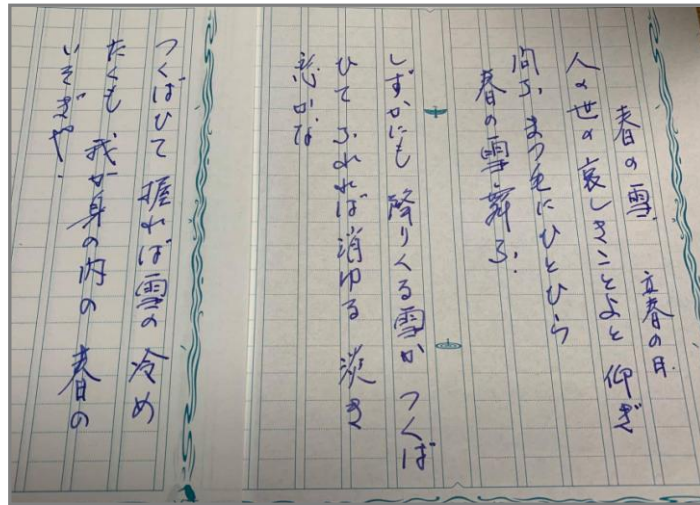 春の雪 立春の日
人の世の哀しきことよと 仰ぎ
問ふ まつ毛にひとひら
春の雪舞ふ.
しずかにも 降りくる雪か つくば
ひて ふれれば消ゆる 淡き
恋かな
つくばひて 握れば雪の 冷め
たくも 我が身の内の 春の
いそぎや.